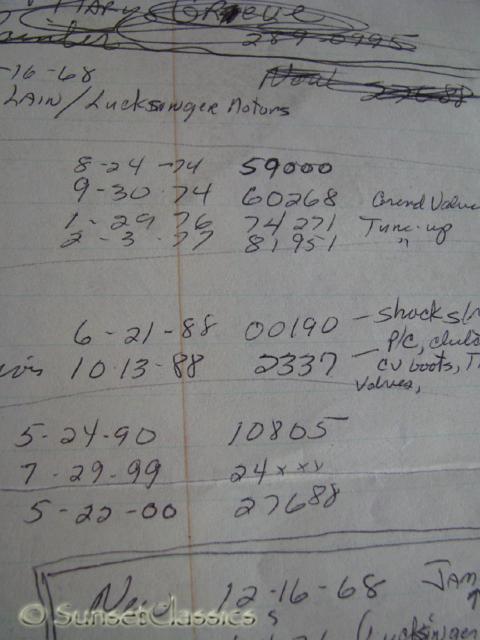 289-0995
-16-68
LAIN/Lucksinger Motors
8-24-74 59000
9-30-74 60268 Grind Valve
1-29-76 74271 Tune-up
2-3-77 81951 "
6-21-88 00190 - shocks
10-13-88 2337 - P/C,
CV boots,
Valves,
5-24-90 10805
7-29-99 24xxx
5-22-00 27688
New 12-16-68 JAM
© SunsetClassics